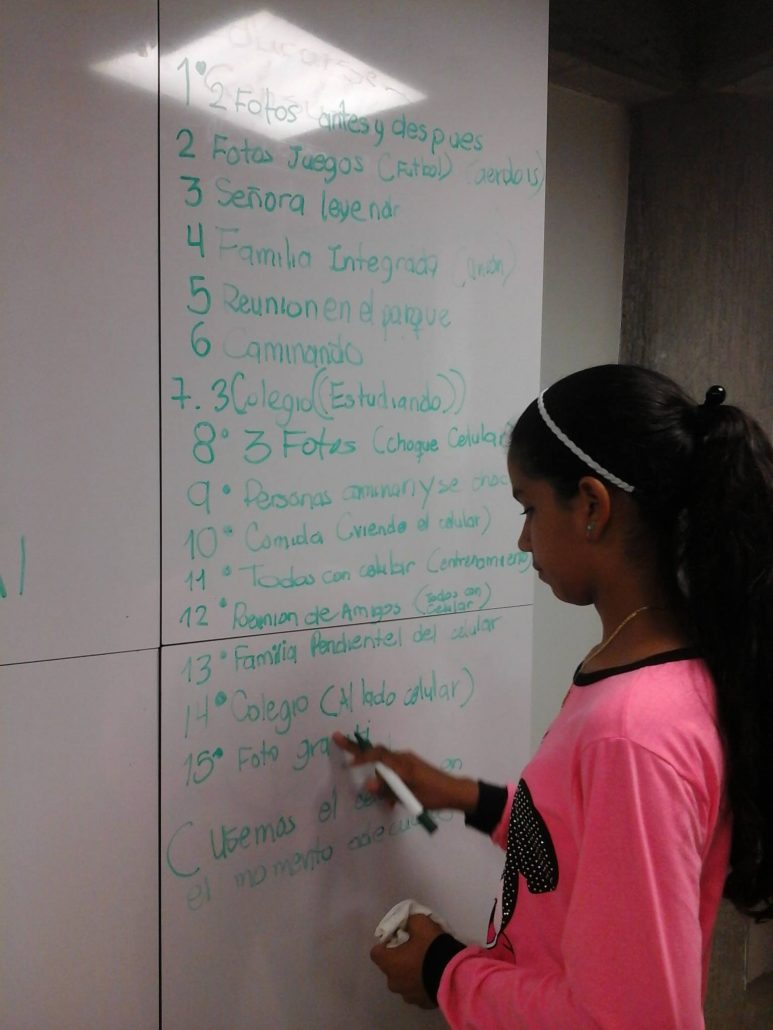 1° 2 Fotos antes y despues
2 Fotos Juegos (Futbol)
3 Señora leyendo
4 Familia Integrada (unión)
5 Reunion en el parque
6 Caminando
7. 3 Colegio ((Estudiando))
8° 3 Fotos (choque Celular
9° Personas caminan y se
10° Comida (viendo el celular)
11° Todos con celular
12° Reunion de Amigos (Todos con celular)
13° Familia Pendiente del celular
14° Colegio (Al lado celular)
15° Foto
( Usemos el en
el momento adecuado